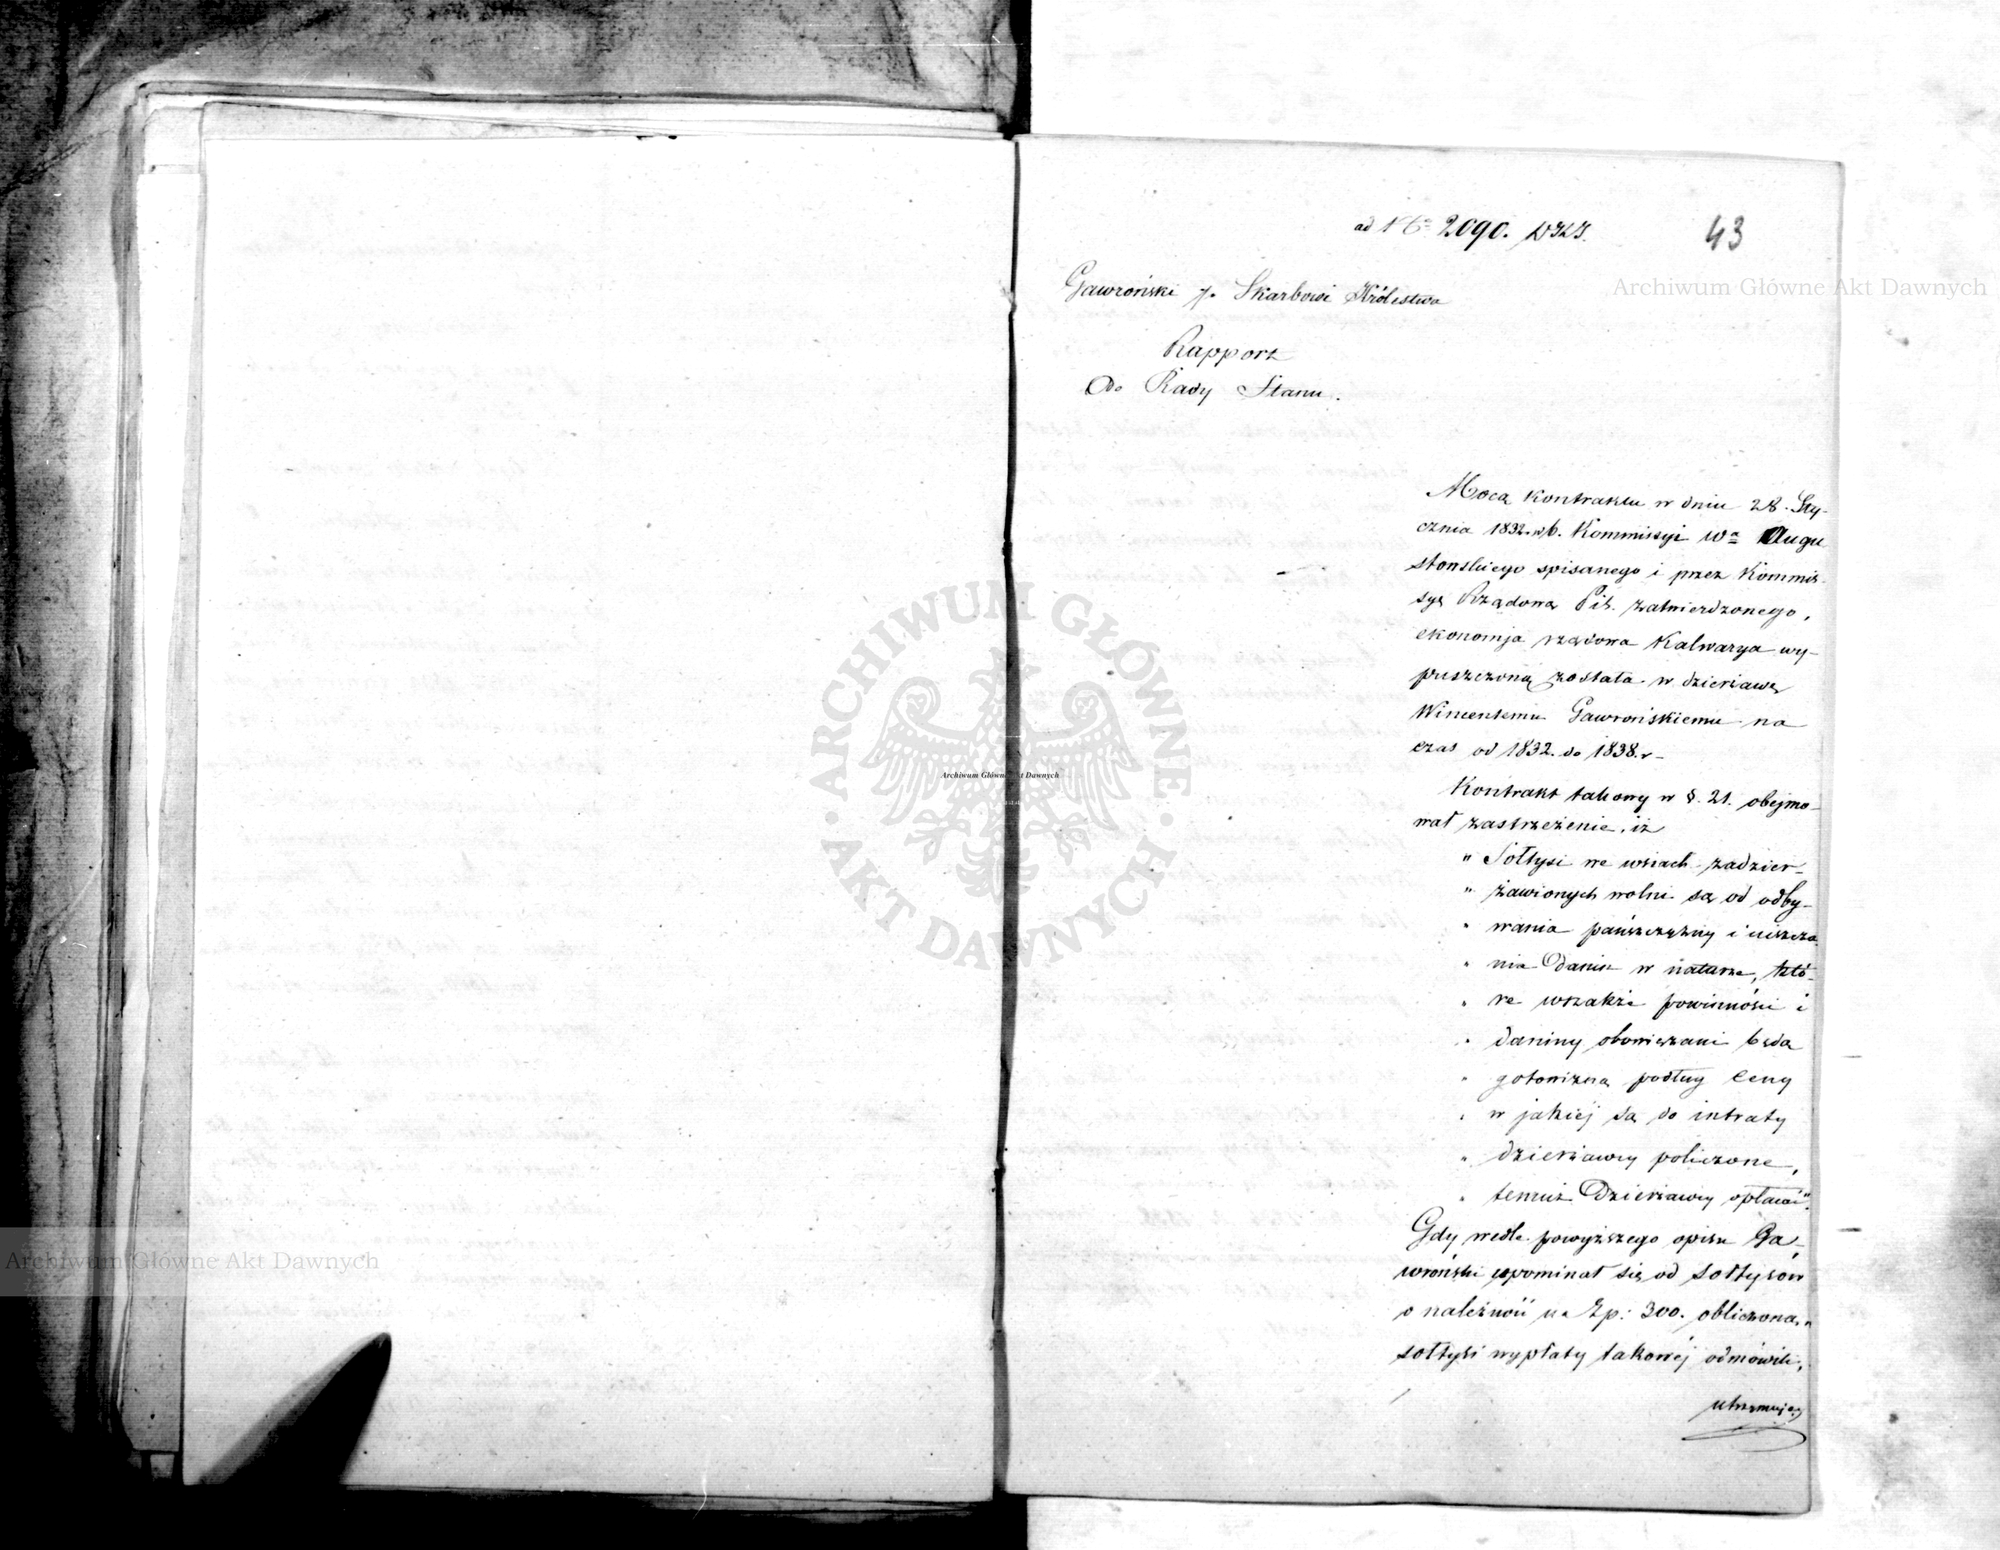 ad No 2090.
43
Gawroński p. Skarbowi Królestwa
Rapport
Do Rady Stanu.
Mocą kontraktu w dniu 28. Sty-
cznia 1832 r. w b. Kommissyi Wa Augu
stowskiego spisanego i przez Kommis-
syę Rządową P. i S. zatwierdzonego,
ekonomja rządowa Kalwarya wy-
puszczoną została w dzierżawę
Wincentemu Gawrońskiemu na
czas od 1832. do 1838. r.
Kontrakt takowy w §. 21. obejmo-
wał zastrzeżenie, iż
" Sołtysi we wsiach zadzier-
" żawionych wolni są od odby-
" wania pańszczyzny i uiszcza
" nia Danin w naturze, któ-
" re wszakże powinności i
" daniny obowiązani będą
" gotowizną podług ceny
" w jakiej są do intraty
" dzierżawy policzone,
" temuż Dzierżawcy opłacać".
Gdy wedle powyższego opisu Ga-
wroński upominał się od sołtysów
o należność na Zp: 300. obliczoną,
sołtysi wypłaty takowej odmówili,
utrzymując
Archiwum Główne Akt Dawnych
Archiwum Główne Akt Dawnych
ARCHIWUM GŁÓWNE · AKT DAWNYCH ·
Archiwum Główne Akt Dawnych